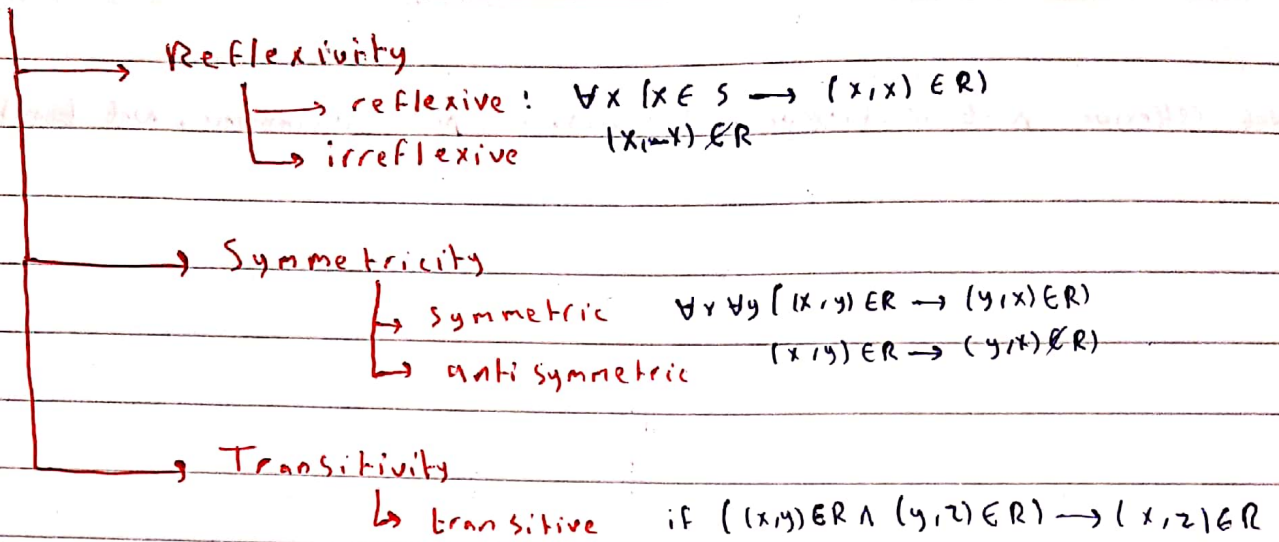 Reflexivity
reflexive : ∀x (x ∈ S → (x,x) ∈ R)
irreflexive (x,x) ∉ R
Symmetricity
symmetric ∀x ∀y ( (x,y) ∈ R → (y,x) ∈ R)
antisymmetric (x,y) ∈ R → (y,x) ∉ R)
Transitivity
transitive if ( (x,y) ∈ R ∧ (y,z) ∈ R) → (x,z) ∈ R